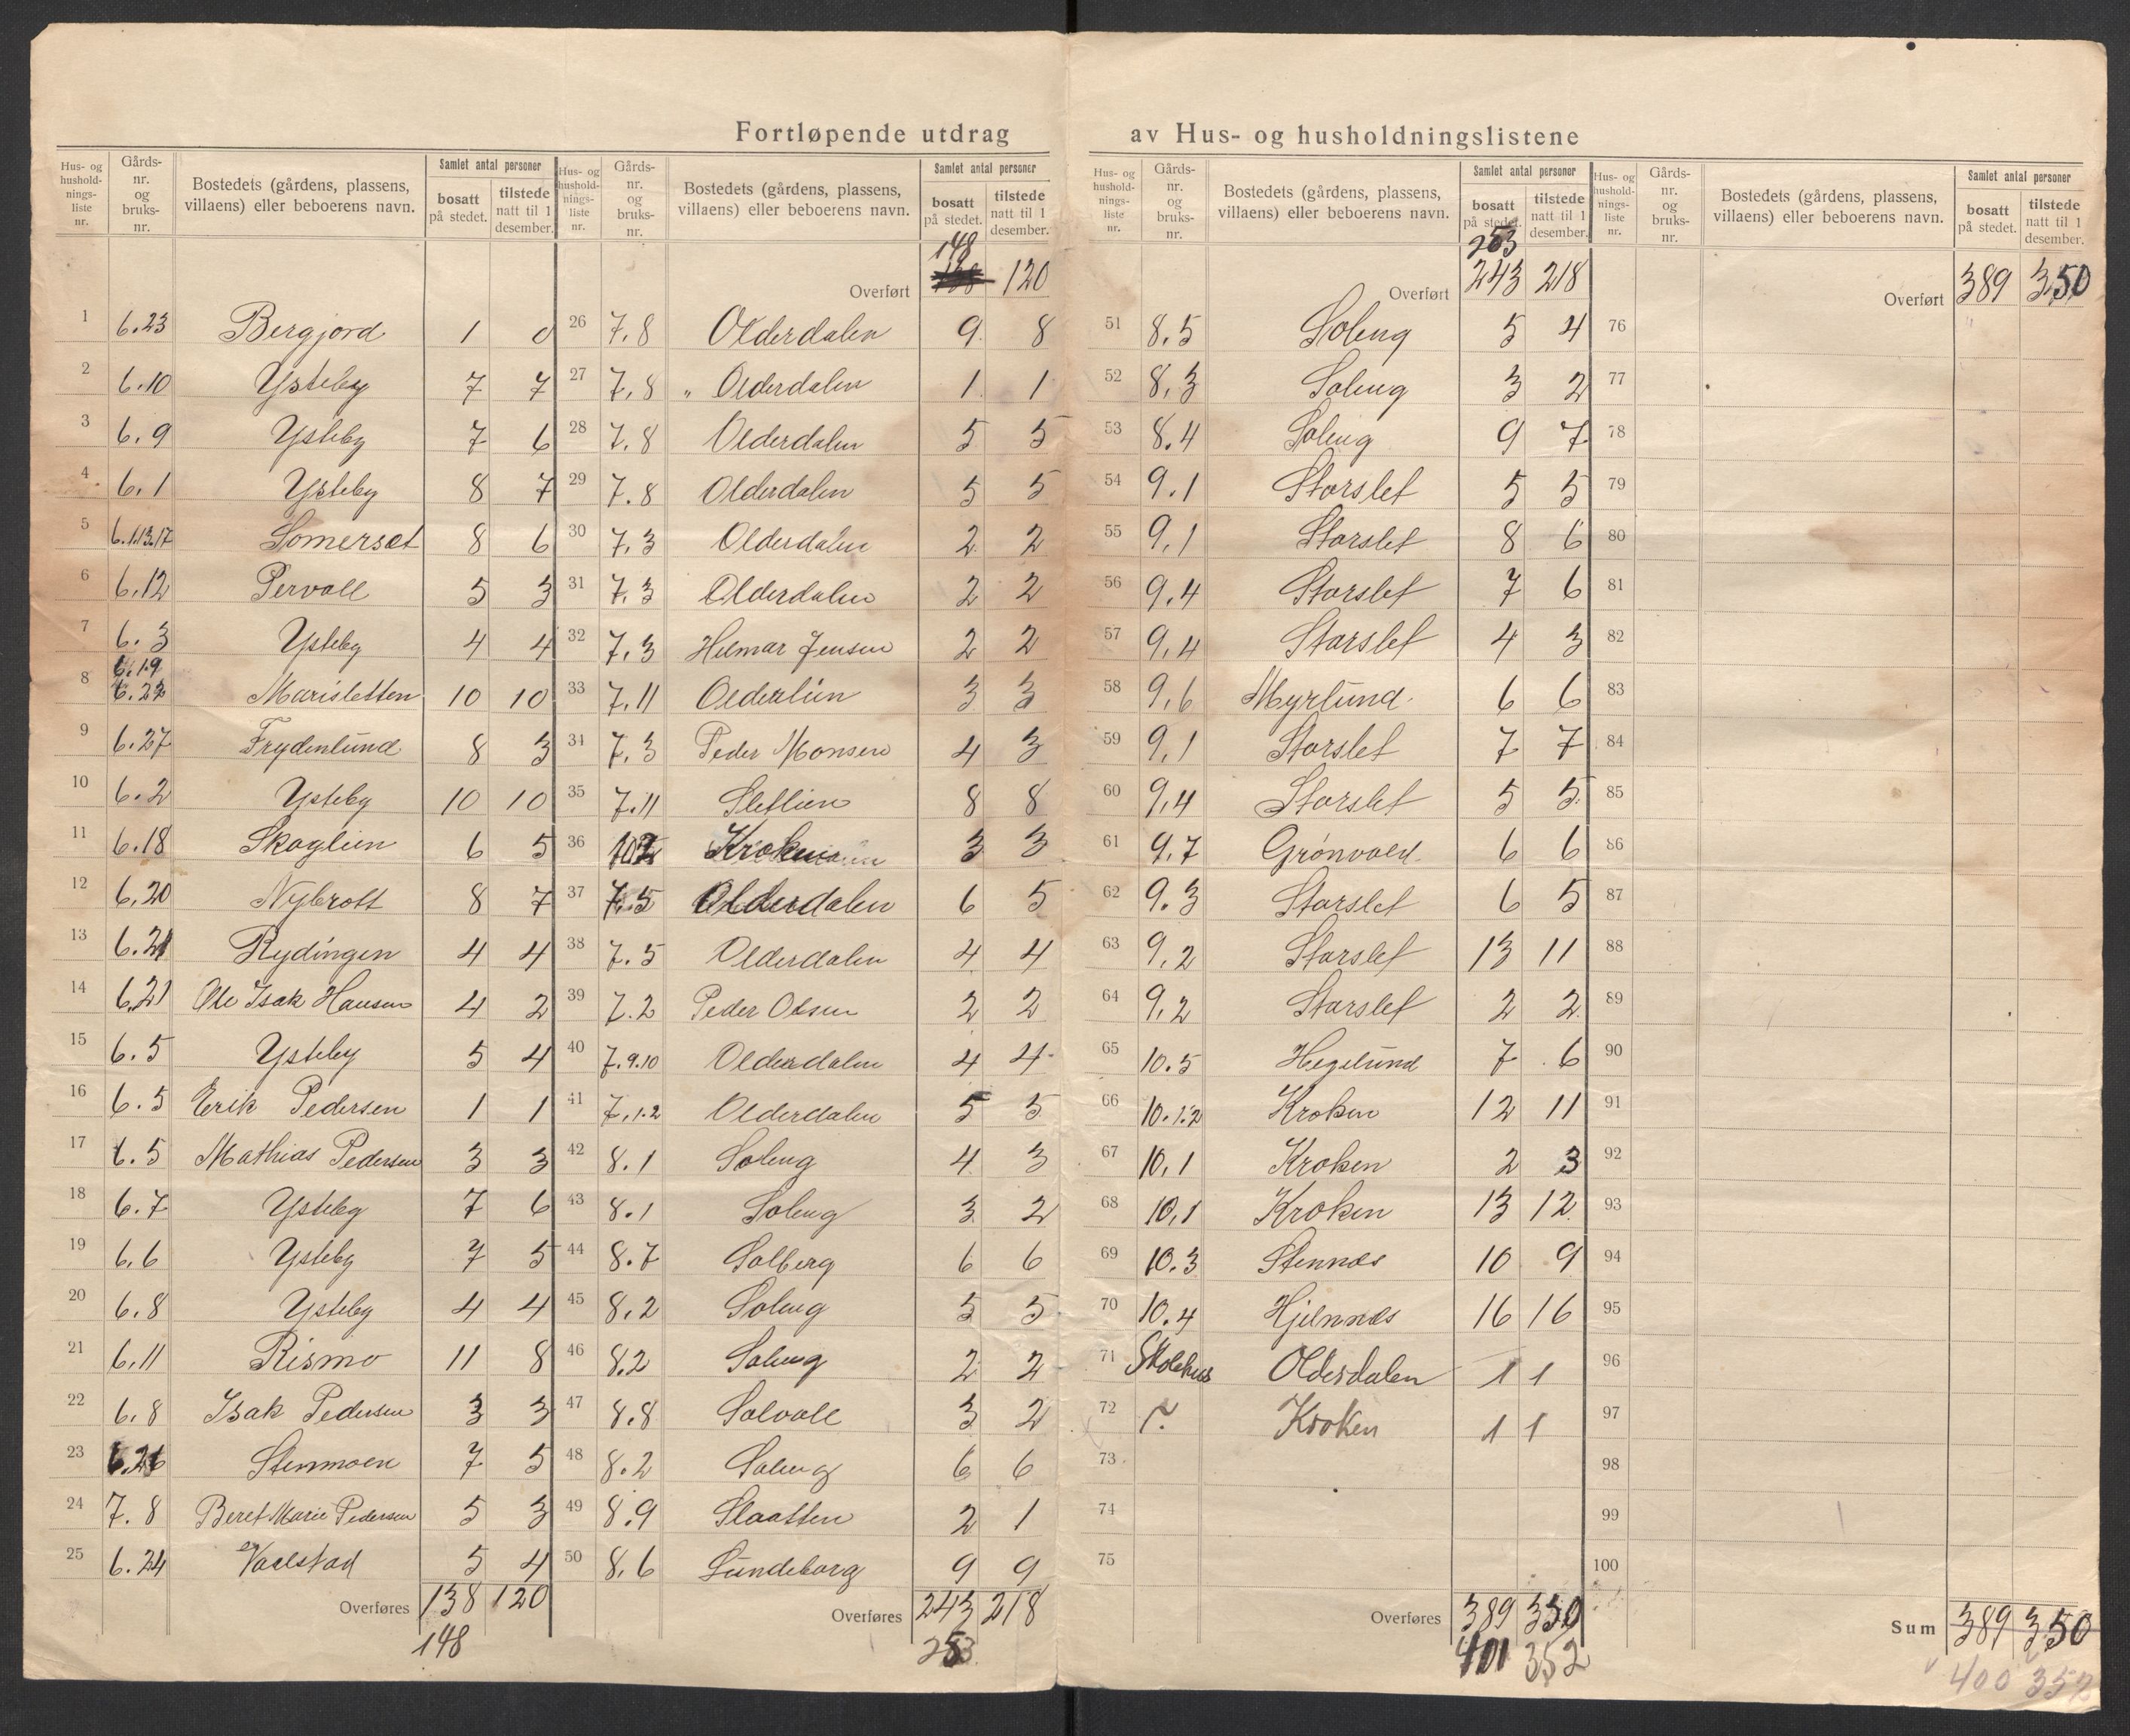 Fortløpende utdrag av Hus- og husholdningslistene
Hus- og husholdningsliste nr. | Gårds-nr. og bruks-nr. | Bostedets (gårdens, plassens, villaens) eller beboerens navn. | Samlet antal personer bosatt på stedet. | tilstede natt til 1 desember.
1 6.23 Bergjord 1 0
2 6.10 Ysteby 7 7
3 6.9 Ysteby 7 6
4 6.1 Ysteby 8 7
5 6.1.13.17 Somerset 8 6
6 6.12 Pervoll 5 3
7 6.3 Ysteby 4 4
8 6.19 6.22 Marisletten 10 10
9 6.27 Frydenlund 8 3
10 6.2 Ysteby 10 10
11 6.18 Skoglien 6 5
12 6.20 Nybrott 8 7
13 6.21 Rydingen 4 4
14 6.21 Ole Isak Hansen 4 2
15 6.5 Ysteby 5 4
16 6.5 Erik Pedersen 1 1
17 6.5 Mathias Pedersen 3 3
18 6.7 Ysteby 7 6
19 6.6 Ysteby 7 5
20 6.8 Ysteby 4 4
21 6.11 Rismo 11 8
22 6.8 Isak Pedersen 3 3
23 6.26 Stenmoen 7 5
24 7.8 Beret Marie Pedersen 5 3
25 6.24 Vollstad 5 4
Overføres 138 120
148
Hus- og husholdningsliste nr. | Gårds-nr. og bruks-nr. | Bostedets (gårdens, plassens, villaens) eller beboerens navn. | Samlet antal personer bosatt på stedet. | tilstede natt til 1 desember.
148
Overført 138 120
26 7.8 Olderdalen 9 8
27 7.8 " Olderdalen 1 1
28 7.8 Olderdalen 5 5
29 7.8 Olderdalen 5 5
30 7.3 Olderdalen 2 2
31 7.3 Olderdalen 2 2
32 7.3 Hilmar Jensen 2 2
33 7.11 Olderlün 3 3
34 7.3 Peder Monsen 4 3
35 7.11 Sletlien 8 8
36 Kroken 3 3
37 7.5 Olderdalen 6 5
38 7.5 Olderdalen 4 4
39 7.2 Peder Olsen 2 2
40 7.9.10 Olderdalen 4 4
41 7.1.2 Olderdalen 5 5
42 8.1 Soleng 4 3
43 8.1 Soleng 3 2
44 8.7 Solberg 6 6
45 8.2 Soleng 5 5
46 8.2 Soleng 2 2
47 8.8 Solvoll 3 2
48 8.2 Soleng 6 6
49 8.9 Slaatten 2 1
50 8.6 Lundeborg 9 9
Overføres 243 218
253
Hus- og husholdningsliste nr. | Gårds-nr. og bruks-nr. | Bostedets (gårdens, plassens, villaens) eller beboerens navn. | Samlet antal personer bosatt på stedet. | tilstede natt til 1 desember.
253
Overført 243 218
51 8.5 Soleng 5 4
52 8.3 Soleng 3 2
53 8.4 Soleng 9 7
54 9.1 Storslet 5 5
55 9.1 Storslet 8 6
56 9.4 Storslet 7 6
57 9.4 Storslet 4 3
58 9.6 Myrlund 6 6
59 9.1 Storslet 7 7
60 9.4 Storslet 5 5
61 9.7 Grönvold 6 6
62 9.3 Storslet 6 5
63 9.2 Storslet 13 11
64 9.2 Storslet 2 2
65 10.5 Hegelund 7 6
66 10.1.2 Kroken 12 11
67 10.1 Kroken 2 3
68 10.1 Kroken 13 12
69 10.3 Stennes 10 9
70 10.4 Hjelnnes 16 16
71 Skolehus Olderdalen 1 1
72 Kroken 1 1
73
74
75
Overføres 389 350
401 352
Hus- og husholdningsliste nr. | Gårds-nr. og bruks-nr. | Bostedets (gårdens, plassens, villaens) eller beboerens navn. | Samlet antal personer bosatt på stedet. | tilstede natt til 1 desember.
Overført 389 350
76
77
78
79
80
81
82
83
84
85
86
87
88
89
90
91
92
93
94
95
96
97
98
99
100
Sum 389 350
400 352